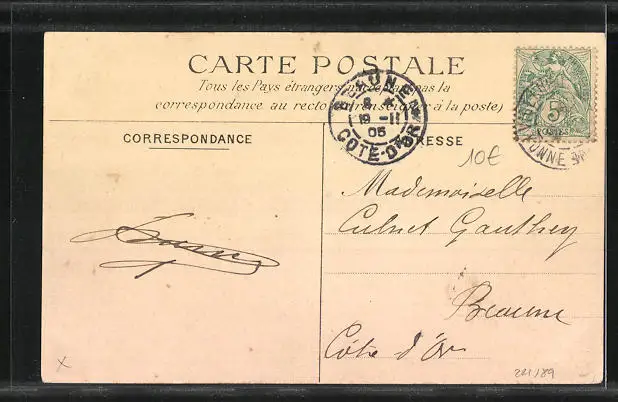 CARTE POSTALE
Tous les Pays étrangers n'acceptent pas la
correspondance au recto (se renseigner à la poste)
CORRESPONDANCE
ADRESSE
BEAUNE
8
19 -11
05
COTE-D'OR
5
POSTES
10€
Mademoiselle
Culnet Gauthey
Beaune
Côte d'Or
x